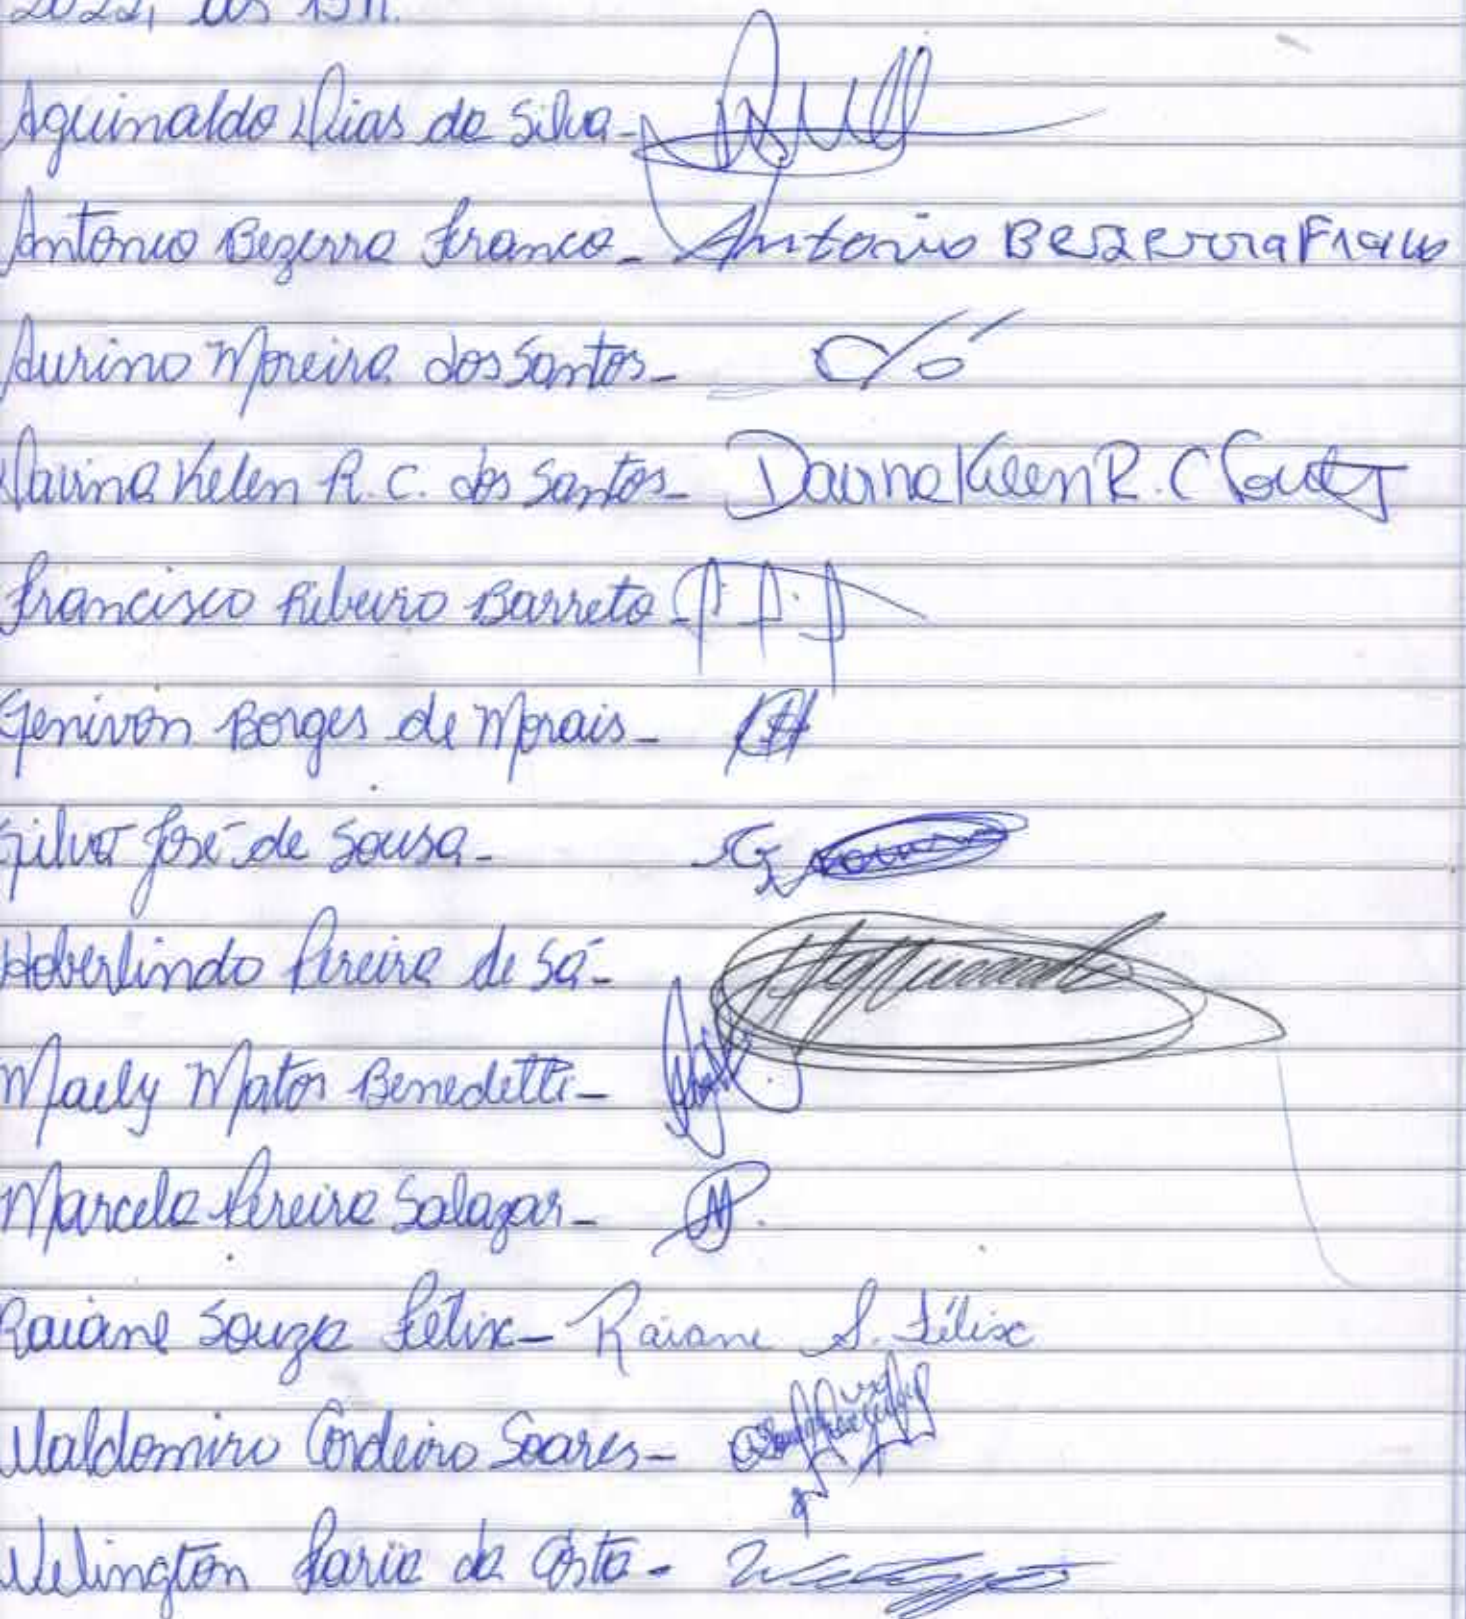 2022, às 15h.
Aguinaldo Dias da Silva-
Antonio Bezerra Franco- Antonio Bezerra Franco
Aurino Moreira dos Santos-
Davina Kelen R. C. dos Santos- Davina Kelen R. C Santos
Francisco Ribeiro Barreto-
Genivon Borges de Morais-
Gilvo José de Sousa-
Hoberlindo Pereira de Sá-
Maely Matos Benedetti-
Marcela Pereira Salazar-
Raiane Souza Felix- Raiane S. Félix
Waldomiro Cordeiro Soares-
Welington Faria da Costa-